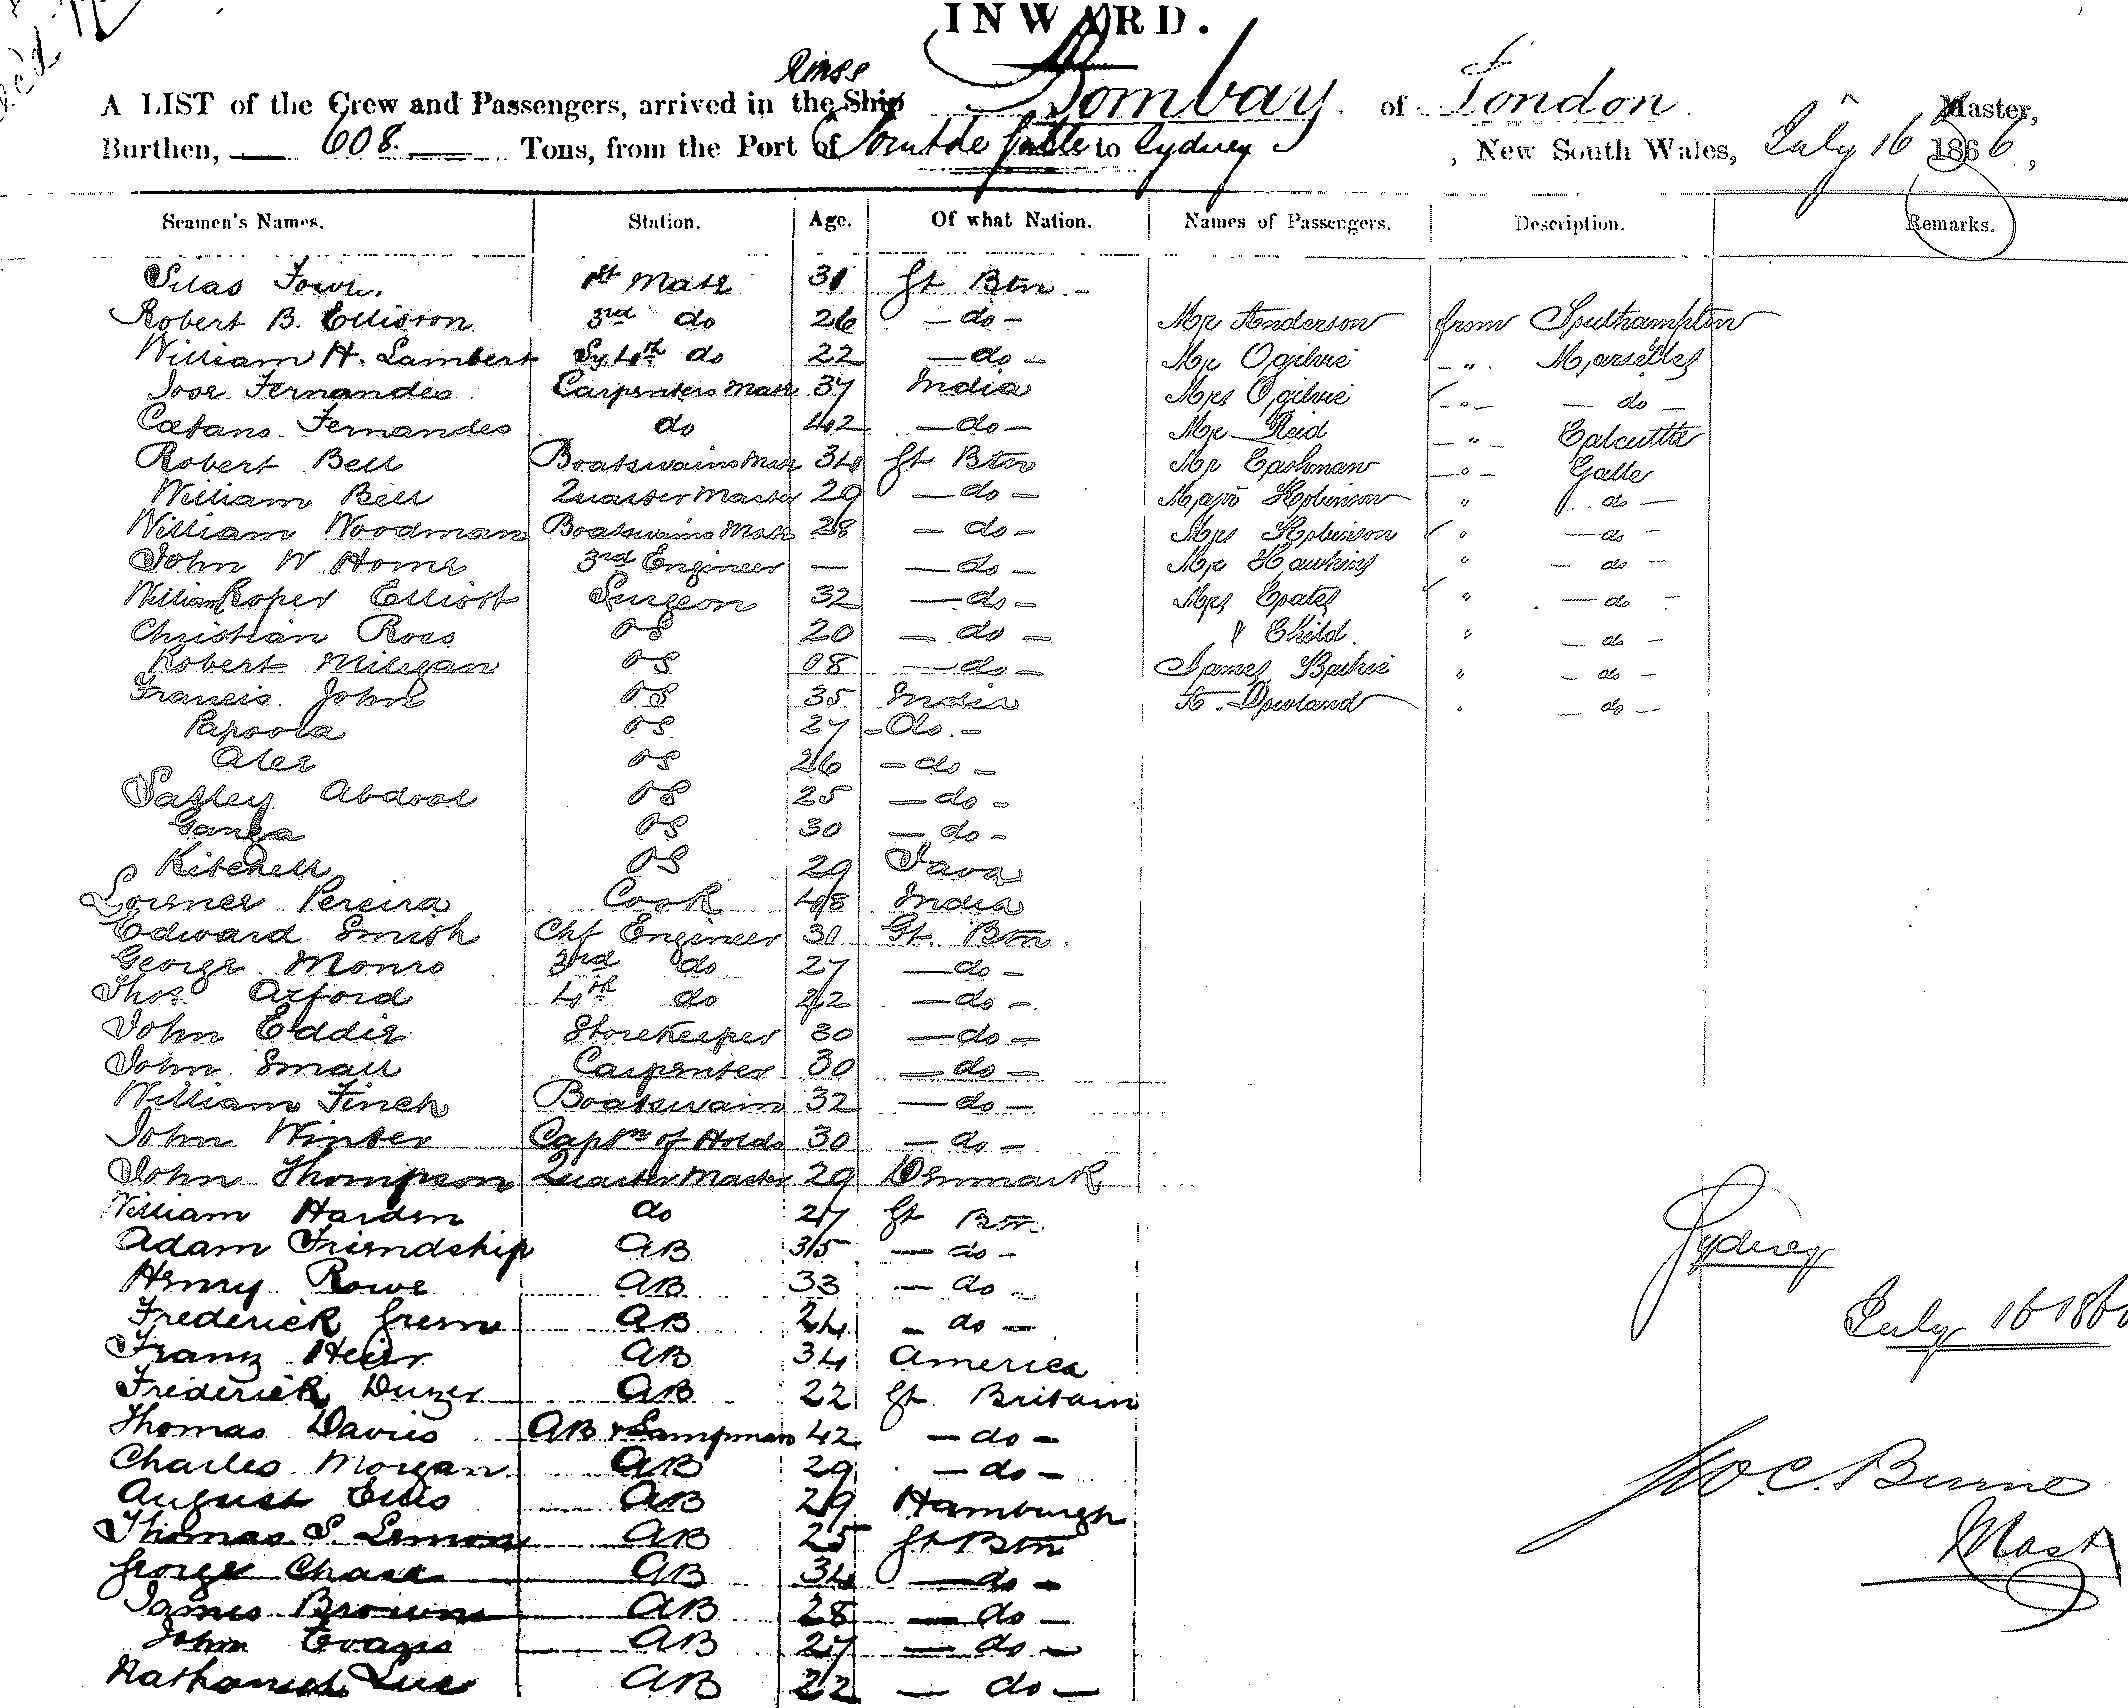 INWARD.
A LIST of the Crew and Passengers, arrived in the Ship Bombay of London Master,
Burthen, 608 Tons, from the Port of Galle to Sydney, New South Wales, July 16 1866,
Seamen's Names. Station. Age. Of what Nation. Names of Passengers. Description. Remarks.
Silas 1st Mate 31 Gt Btn
Robert B. Ellison 3rd do 26 - do - Mr Anderson from Southampton
William H. Lambert 4th do 22 - do - Mr Ogilvie - " - Marseilles
Jose Fernandes Carpenters Mate 37 India Mrs Ogilvie - " - - do -
Caetano Fernandes do 42 - do - Mr Reid - " - Calcutta
Robert Bell Boatswains Mate 34 Gt Btn Mr Cashman - " - Galle
William Bell Quarter Master 29 - do - Major Robinson " do -
William Woodman Boatswains Mate 28 - do - Mrs Robinson " - do -
John W Home 3rd Engineer — - do - Mr Hawkins " - do -
William Roper Elliott Surgeon 32 - do - Mrs " - do -
Christian Ross OS 20 - do - & Child " - do -
Robert Miligan OS 08 - do - James " - do -
Francis John OS 35 India " - do -
Papoola OS 27 - Do. -
OS 26 - do -
Abdool OS 25 - do -
Ganga OS 30 - do -
Kitchell OS 29 Java
Pereira Cook 48 India
Edward Smith Chf Engineer 30 Gt. Btn.
George Monro 3rd do 27 - do -
Thos Axford 4th do 22 - do -
John Eddie Storekeeper 30 - do -
John Small Carpenter 30 - do -
William Finch Boatswain 32 - do -
John Winter Captn of Holds 30 - do -
John Thompson Quarter Master 29 Denmark
William Harden do 27 Gt Btn
Adam Friendship AB 35 - do -
Henry Rowe AB 33 - do -
Frederick Green AB 24 - do -
Franz AB 34 America
Frederick AB 22 Gt Britain
Thomas Davies AB & Lampman 42 - do -
Charles Morgan AB 29 - do -
August Ellis AB 29 Hamburgh
Thomas S. Lemon AB 25 Gt Btn
George Chase AB 34 - do -
James Brown AB 28 - do -
John Evans AB 27 - do -
Nathaniel Luce AB 22 - do -
Sydney
July 16 1866
C. Burne
Mast